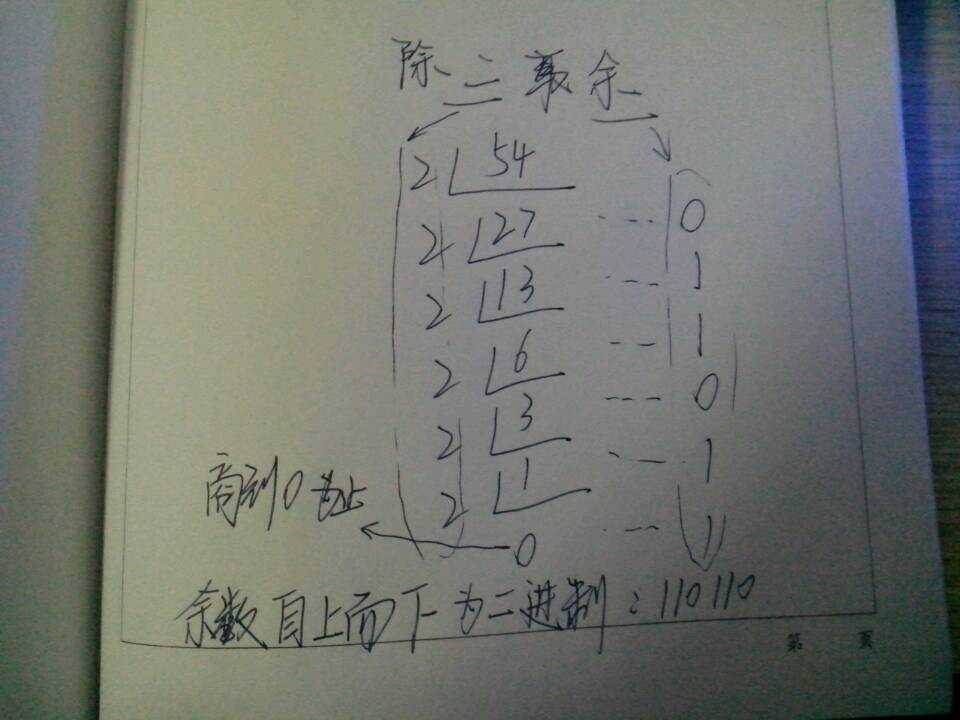 除二取余
2 54
2 27 --- 0
2 13 --- 1
2 6 --- 1
2 3 --- 0
2 1 --- 1
商到0为止
0 --- 1
余数自上而下为二进制:110110
第 页